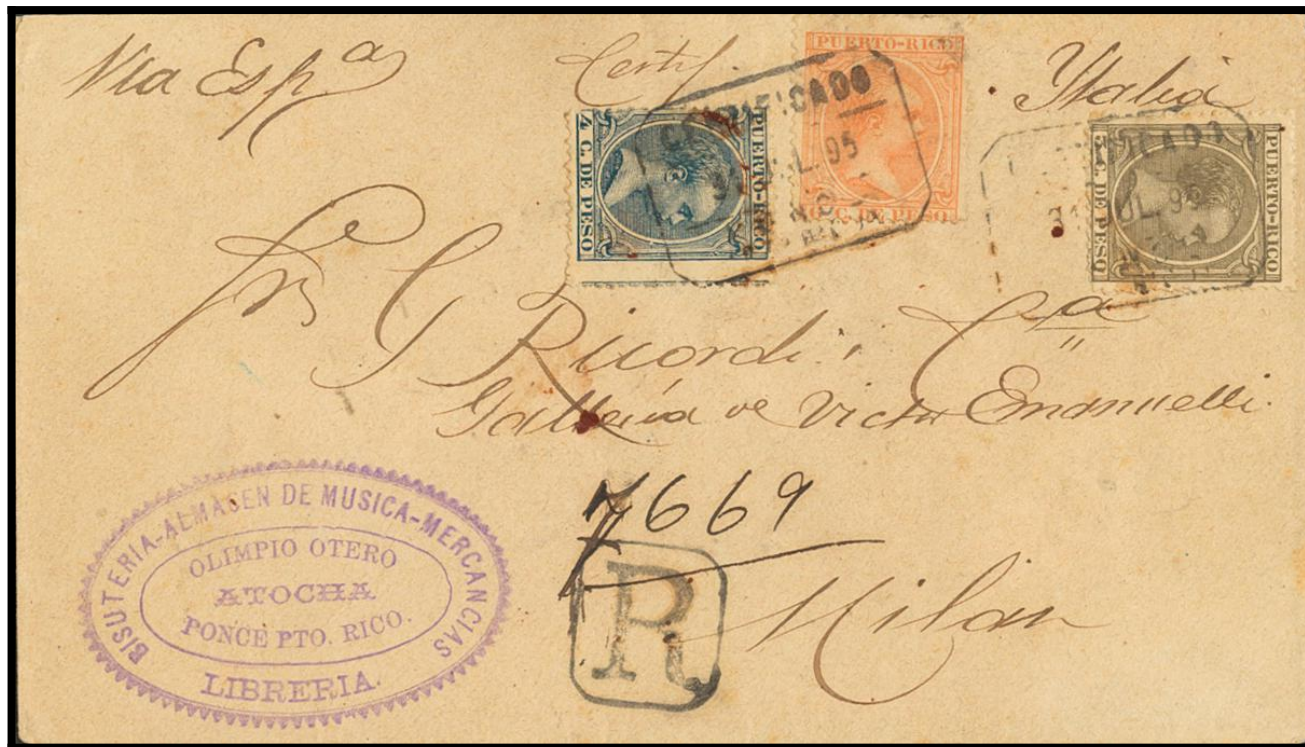 Via Espª
Certf.
Italia
PUERTO-RICO
C. DE PESO
4 C. DE PESO
PUERTO-RICO
CERTIFICADO
JUL. 95
PUERTO-RICO
C. DE PESO
G Ricordi Cª
Galleria de Victor Emanuelli.
7669
R
Milan
BISUTERIA-ALMASEN DE MUSICA-MERCANCIAS
OLIMPIO OTERO
ATOCHA
PONCE PTO. RICO.
LIBRERIA.